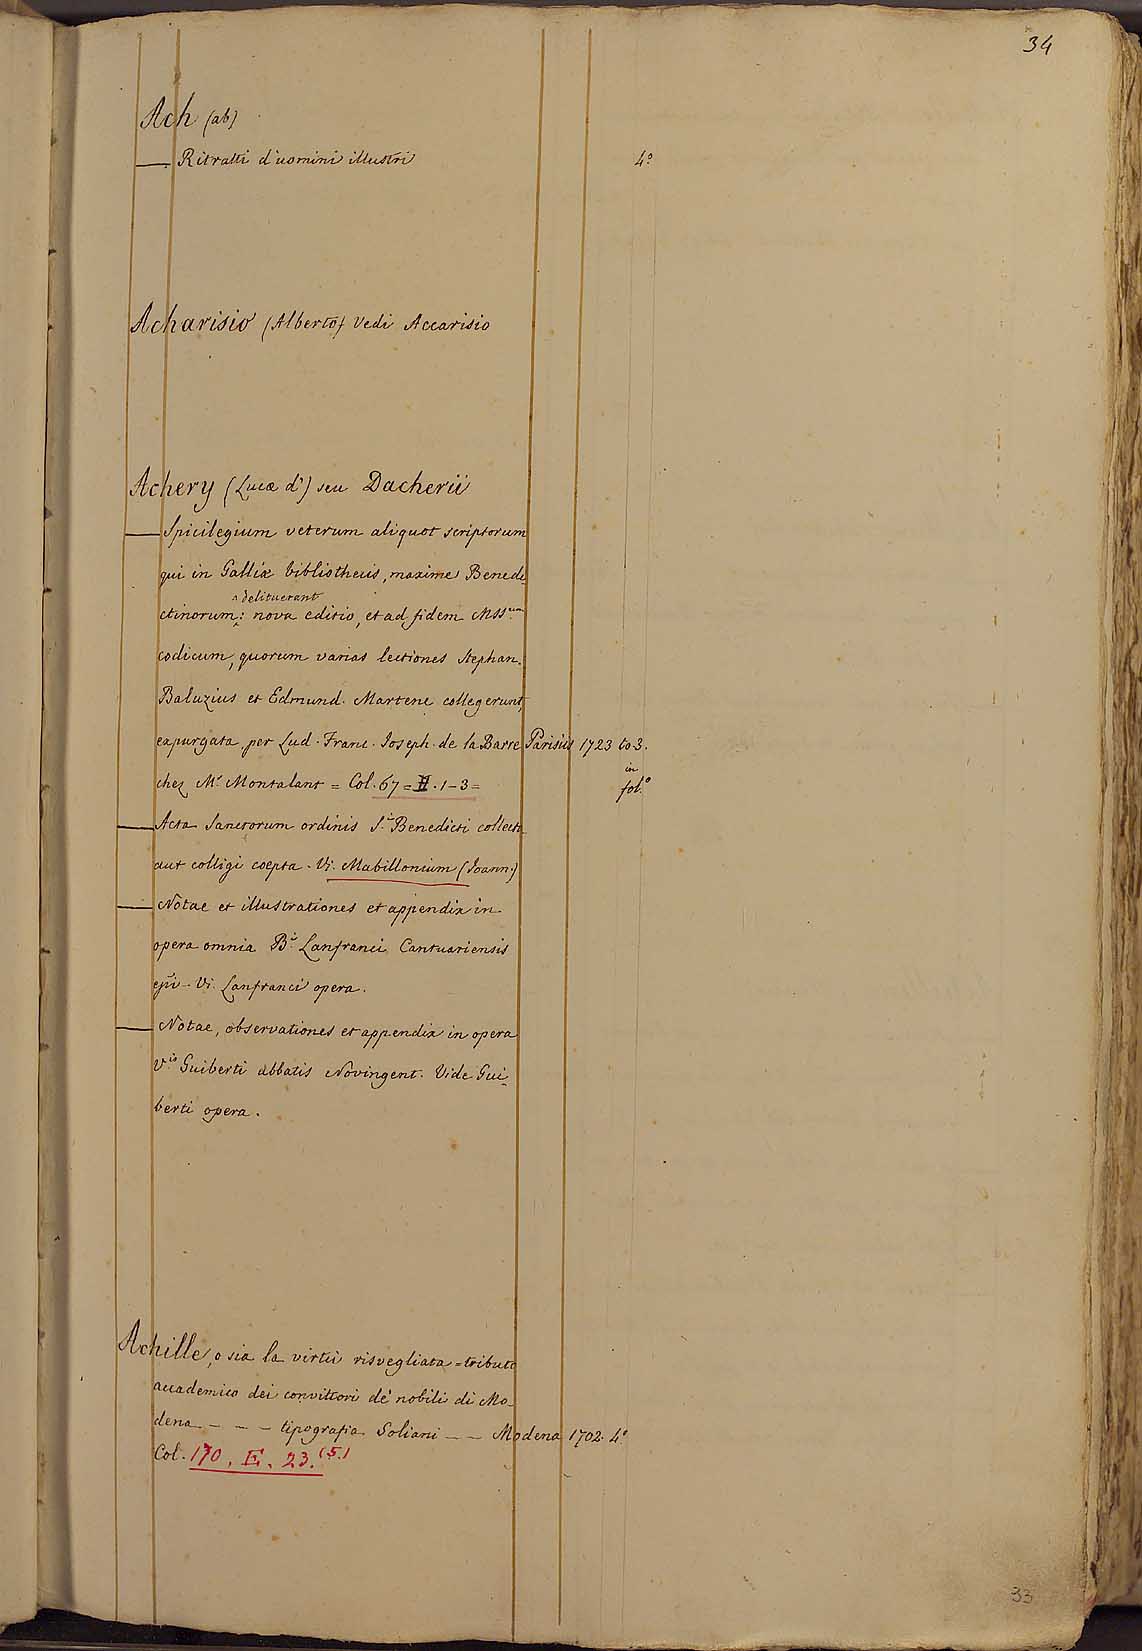 34
Ach (ab)
— Ritratti d'uomini illustri 4.º
Acharisio (Alberto) Vedi Accarisio
Achery (Lucæ d') seu Dacherii
— Spicilegium veterum aliquot scriptorum
qui in Galliæ bibliothecis, maxime Benedi-
^ delituerant
ctinorum: nova editio, et ad fidem Mss.um
codicum, quorum varias lectiones Stephan.
Baluzius et Edmund. Martene collegerunt,
expurgata per Lud. Franc. Joseph. de la Barre Parisiis 1723 to 3.
in
chez Mr. Montalant = Col. 67 = H. 1-3 = fol.º
— Acta Sanctorum ordinis S.i Benedicti collecta
aut colligi coepta. Vi. Mabillonium (Joann.)
— Notae et illustrationes et appendix in
opera omnia B.i Lanfranci Cantuariensis
epi - Vi. Lanfranci opera.
— Notae, observationes et appendix in opera
V.is Guiberti abbatis Novingent. Vide Gui-
berti opera.
Achille, o sia la virtù risvegliata = tributo
accademico dei convittori de' nobili di Mo-
dena - - - tipografia Soliani - - Modena 1702. 4º
Col. 170. E. 23. (5.)
33